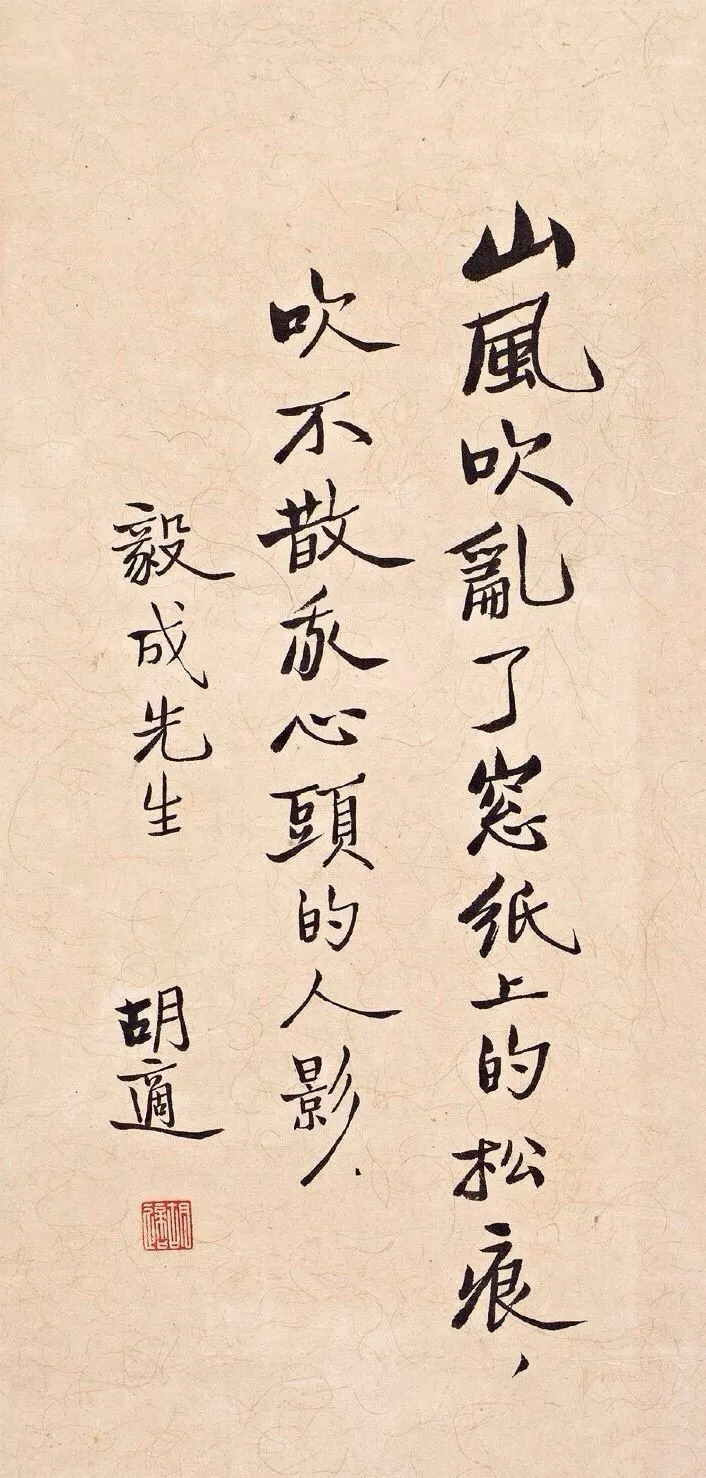 山風吹亂了窓紙上的松痕，
吹不散我心頭的人影．
毅成先生
胡適
胡適